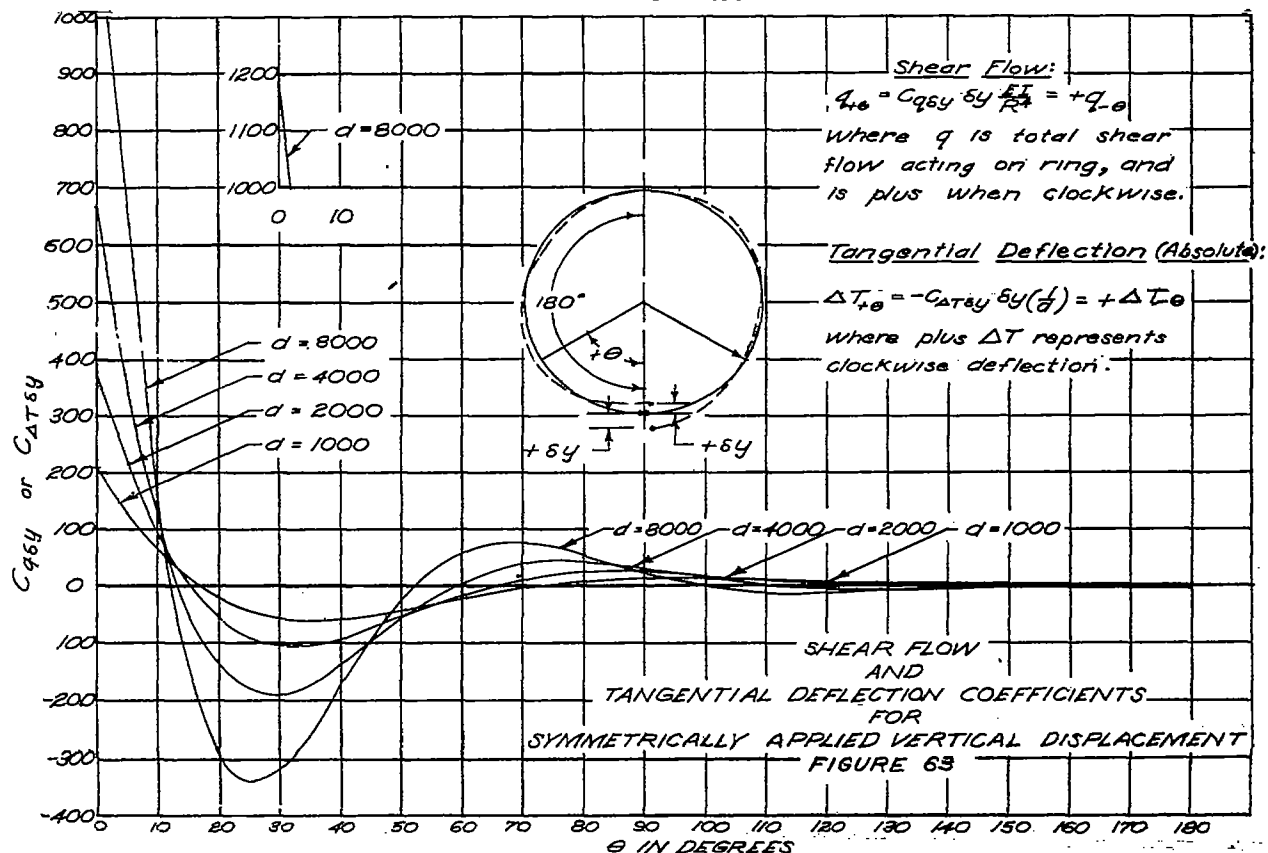 1000
900
800
700
600
500
400
300
200
100
0
100
-200
-300
-400
C qδy or C ΔTδy
1200
1100
1000
0 10
d=8000
d=8000
d=4000
d=2000
d=1000
180°
+θ
+δy
+δy
Shear Flow:
q+θ = Cqδy δy EI/R⁴ = +q-θ
where q is total shear
flow acting on ring, and
is plus when clockwise.
Tangential Deflection (Absolute):
ΔT+θ = -CΔTδy δy(1/d) = +ΔT-θ
where plus ΔT represents
clockwise deflection.
d=8000 d=4000 d=2000 d=1000
SHEAR FLOW
AND
TANGENTIAL DEFLECTION COEFFICIENTS
FOR
SYMMETRICALLY APPLIED VERTICAL DISPLACEMENT
FIGURE 63
0 10 20 30 40 50 60 70 80 90 100 110 120 130 140 150 160 170 180
θ IN DEGREES